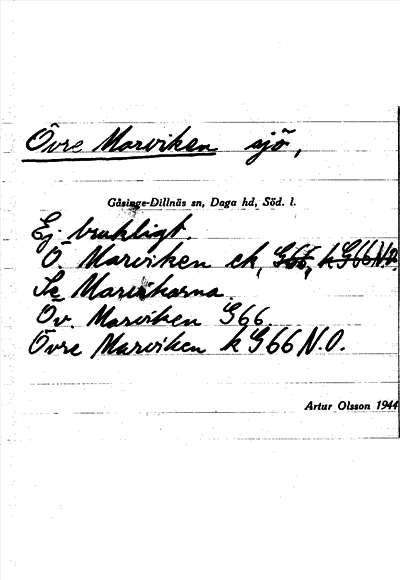 Övre Marviken sjö,
Gåsinge-Dillnäs sn, Daga hd, Söd. l.
Ej brukligt.
Ö. Marviken ek, G66, k G66 N.O.
Se Marvikarna.
Öv. Marviken G66
Övre Marviken k G66 N.O.
Artur Olsson 1944